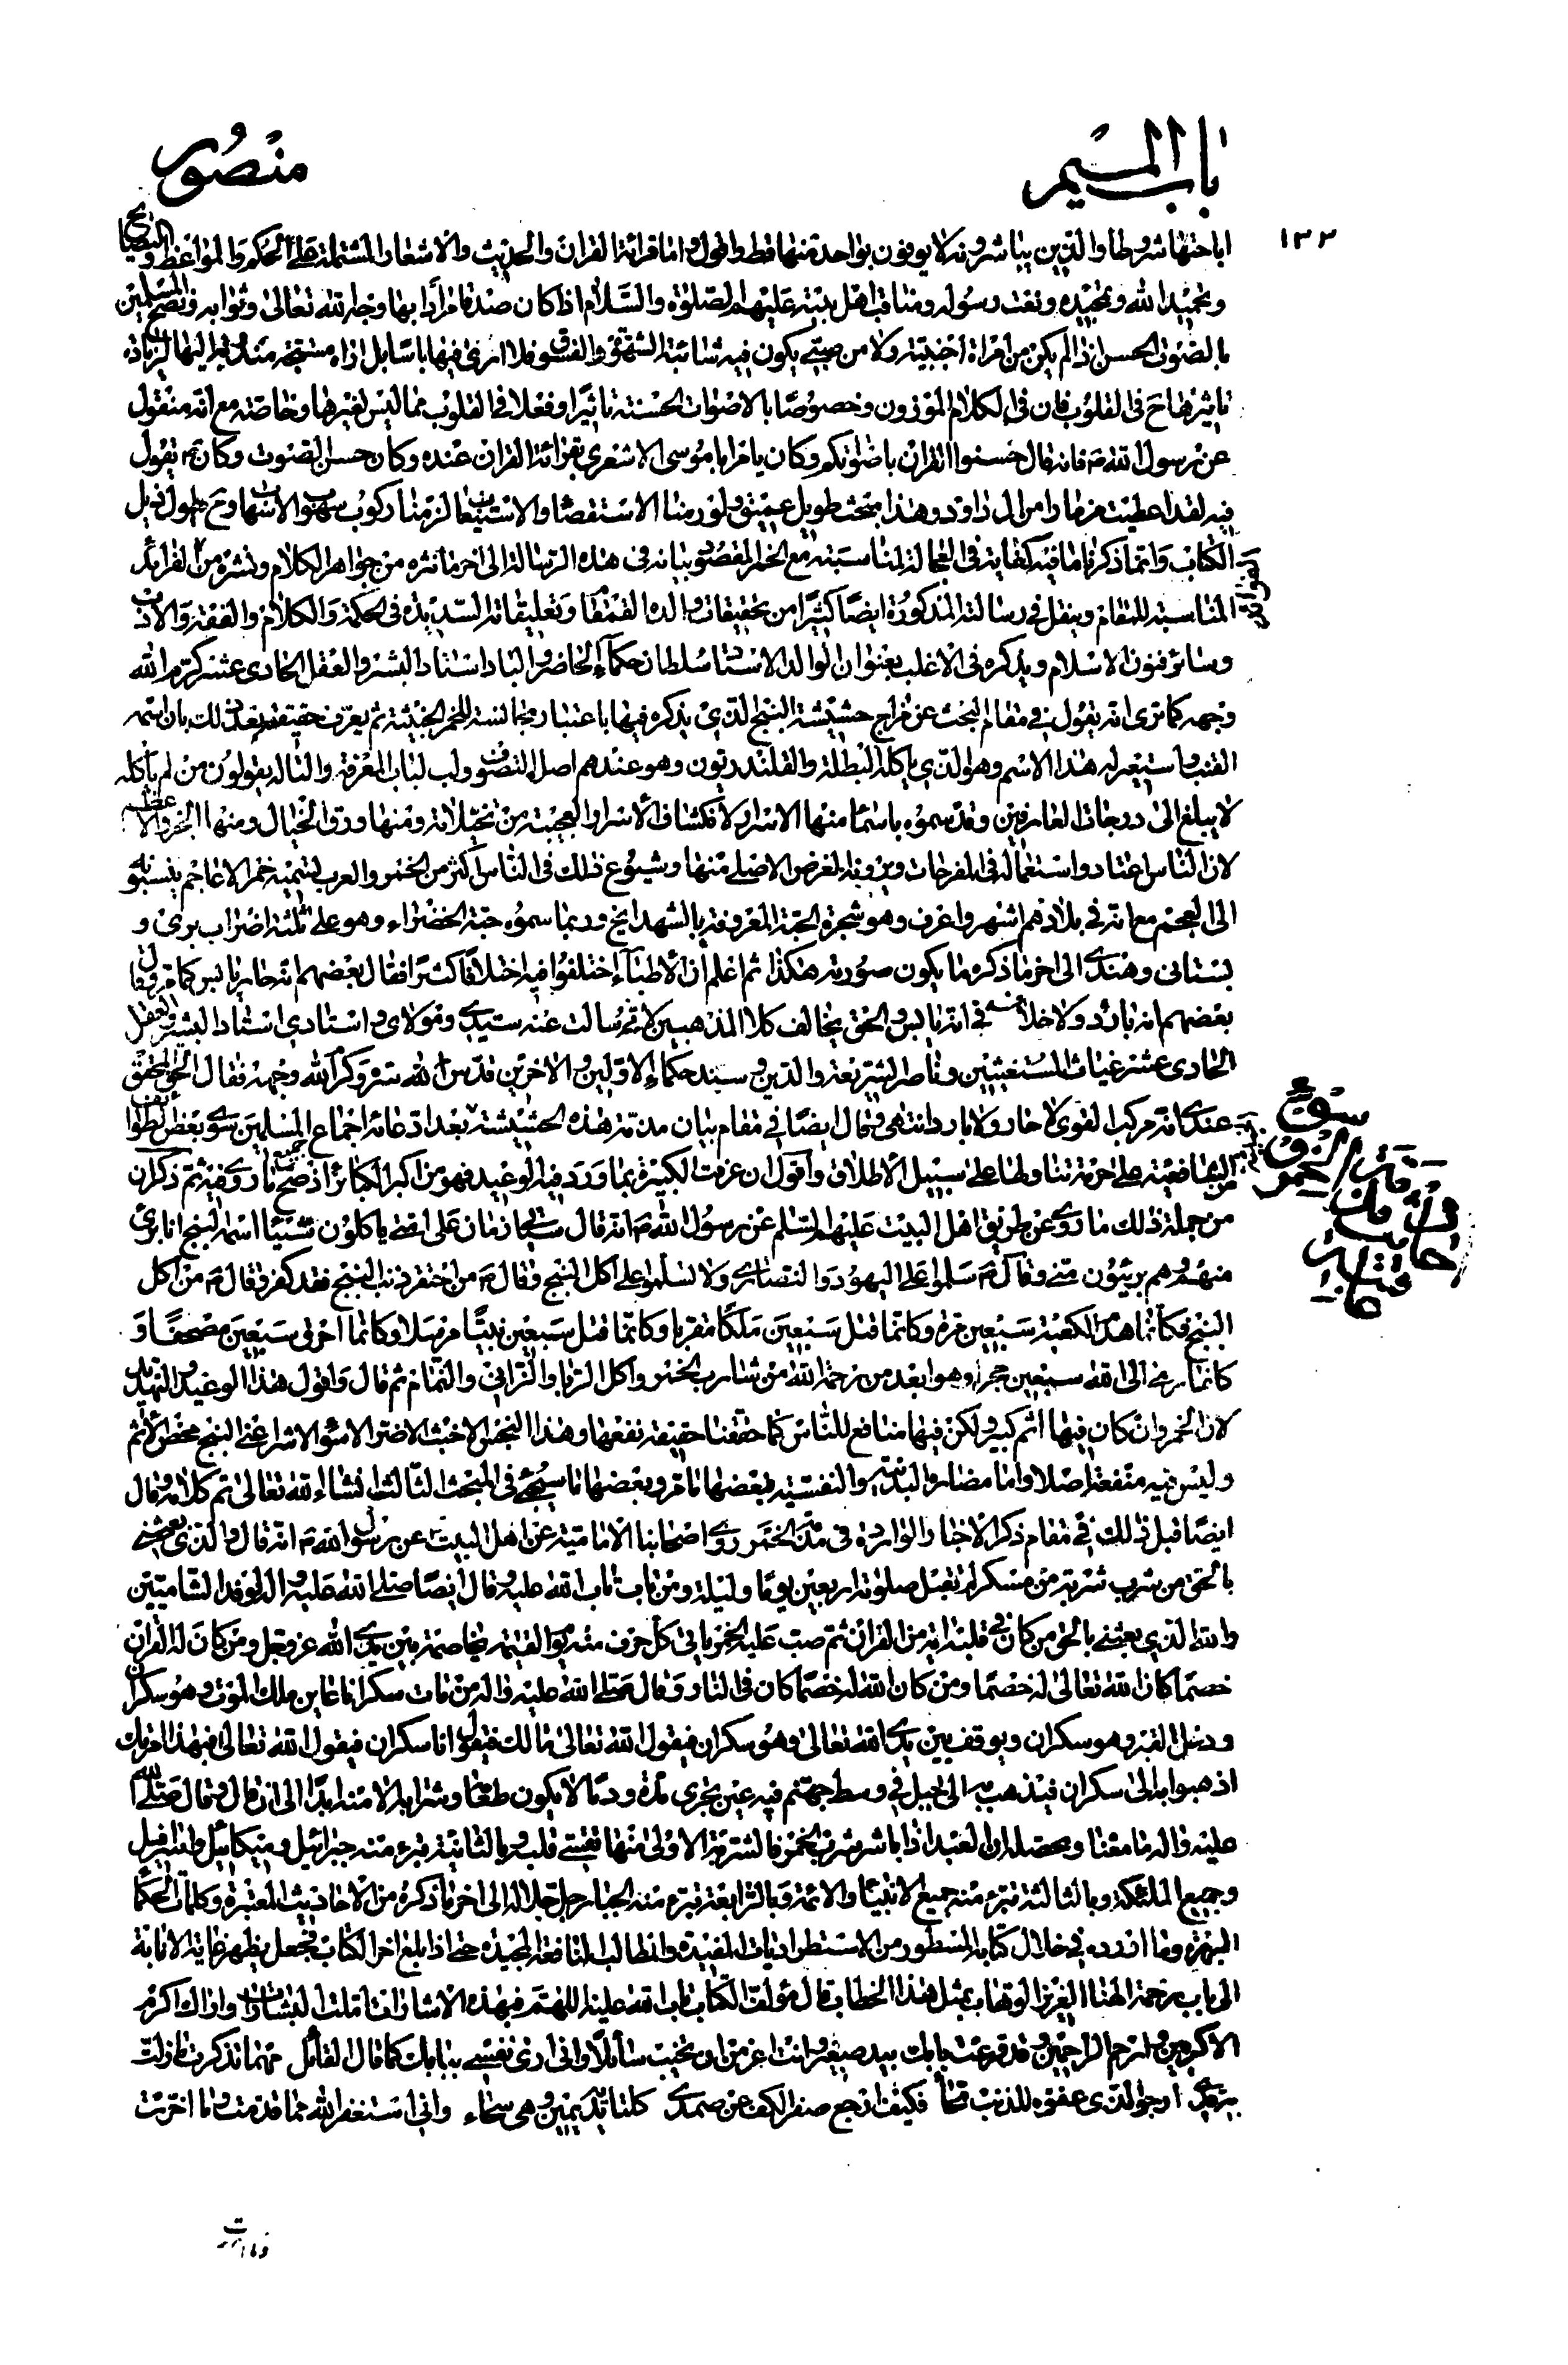 باب الميم
منصور
١٣٣
اباحتها شروطا والذين يباشرونه لا يوفون بواحدة منها قط واقول واما قرائة القران والحديث والاشعار المشتملة على الحكم والمواعظ والنصايح
وتحميد الله وتمجيده ونعت رسوله ومناقب اهل بيته عليهم الصلوة والسلام اذا كان صدقا مرادا بها وجه الله تعالى وثوابه ونصح المسلمين
بالصوت الحسن اذا لم يكن من امراة اجنبية ولا من صبي يكون فيه شائبة التشوق والفسوق فلا ارى فيها باسا بل اراه مستحبة مندوبا اليها لزيادة
تاثيرها ح فى القلوب فان فى الكلام الموزون وخصوصا بالاصوات الحسنة تاثيرا وفعلا فى القلوب مما ليس لغيرها وخاصة مع انه منقول
عن رسول الله ص فانه قال حسنوا القران باصواتكم وكان يامر ابا موسى الاشعرى بقرائة القران عنده وكان حسن الصوت وكان ص يقول
فيه لقد اعطيت مزمارا من ال داود وهذا مبحث طويل عميق ولو رمنا الاستقصا والاستيعا لزمنا ركوب سهو الاسهاب وح طول ذيل
الكتاب وانما ذكرنا ما فيه كفاية فى العجالة لمناسبته مع الخمر المقصود بيانه فى هذه الرسالة الى اخر ما نثره من جواهر الكلام ونشره من الفرائد
المناسبة للمقام وينقل فى رسالته المذكورة ايضا كثيرا من تحقيقات والده القمقام وتعليقاته السديدة فى الحكمة والكلام والفقه والاداب
وسائر فنون الاسلام ويذكره فى الاغلب بعنوان الوالد الاستاد سلطان حكماء الحاضر والباد استاد البشر والعقل الحادى عشر كرم الله
وجهه كما ترى انه يقول فى مقام البحث عن مزاج حشيشة البنج الذى يذكره فيها باعتبار مجانسته للخمر الخبيثة ثم يعرف حقيقته بعد ذلك بان اسمه
القنب واستعير له هذا الاسم وهو الذى ياكله البطلة والقلندريون وهو عندهم اصل التصوف ولب لباب المعرفة والتاله يقولون من لم ياكله
لا يبلغ الى درجات العارفين وقد سموه باسما منها الاسرار لانكشاف الاسرار العجيبة من تخيلاته ومنها ورق الخيال ومنها الخمر الاعظم
لان الناس اعتادوا استعماله فى المفرحات ويروونه الغرض الاصلى منها وشيوع ذلك فى الناس اكثر من الخمر والعرب تسميه خمر الاعاجم ينسبونه
الى العجم مع انه فى بلادهم اشهر واعرف وهو شجرة الحبة المعروفة بالشهدانج وربما سموه حبة الخضراء وهو على ثلثة اضراب برى و
بستانى وهندى الى اخر ما ذكره ما يكون صورته هكذا ثم اعلم ان الاطباء اختلفوا فيه اختلافا كثيرا فقال بعضهم انه حار يابس كما مر وقال
بعضهم انه بارد ولا خلاف فى انه يابس والحق يخالف كلا المذهبين لانى سالت عنه سيدى ومولاى واستادى استاد البشر والعقل
الحادى عشر غياث المستغيثين وناصر الشريعة والدين وسيد حكماء الاولين والاخرين قدس الله سره وكرم الله وجهه فقال الحق المحقق
عندى انه مركب القوى لا حار ولا بارد انتهى وقال ايضا فى مقام بيان مذمة هذه الحشيشة بعد ادعائه اجماع المسلمين سوى بعض الطوائف
من الشافعية على حرمة تناولها على سبيل الاطلاق واقول ان عزمت الكبيرة بما ورد فيه الوعيد فهو من اكبر الكبائر اذ صح جميع ما روى فيه ثم ذكر ان
من جملة ذلك ما روى عن طريق اهل البيت عليهم السلم عن رسول الله ص انه قال سياتى زمان على امتى ياكلون شيئا اسمه البنج انا برى
منهم وهم بريئون منى وقال ص سلموا على اليهود والنصارى ولا تسلموا على اكل البنج وقال ص من احتقر ذنب البنج فقد كفر وقال ص من اكل
البنج فكانما هدم الكعبة سبعين مرة وكانما قتل سبعين ملكا مقربا وكانما قتل سبعين نبيا مرسلا وكانما احرق سبعين مصحفا و
كانما رمى الى الله سبعين حجرا وهو ابعد من رحمة الله من شارب الخمر واكل الربا والزانى والنمام ثم قال واقول هذا الوعيد والتهديد
لان الخمر وان كان فيها اثم كبير ولكن فيها منافع للناس كما حققنا حقيقة نفعها وهذا النجس الاخبث الاضر الاسوء الاشر اعنى البنج محض الاثم
وليس فيه منفعة اصلا واما مضاره البدنية والنفسية فبعضها ما مر وبعضها ما سيجئ فى المبحث الثالث انشاء الله تعالى تم كلامه وقال
ايضا قبل ذلك فى مقام ذكر الاخبار الواردة فى مذمة الخمر روى اصحابنا الامامية عن اهل البيت عن رسول الله ص انه قال والذى بعثنى
بالحق من شرب شربة من مسكر لم تقبل صلوته اربعين يوما وليلة ومن تاب تاب الله عليه وقال ايضا صلى الله عليه واله لوفد الشاميين
والله الذى بعثنى بالحق من كان فى قلبه اية من القران ثم صب عليه الخمر ياتى كل حرف منه يوم القيمة يخاصمه بين يدى الله عز وجل ومن كان له القران
خصما كان الله تعالى له خصما ومن كان الله له خصما كان فى النار وقال صلى الله عليه واله من مات سكرانا عاين ملك الموت وهو سكران
ودخل القبر وهو سكران ويوقف بين يدى الله تعالى وهو سكران فيقول الله تعالى مالك فيقول انا سكران فيقول الله تعالى ابهذا امرتك
اذهبوا به الى سكران فيذهب به الى جبل فى وسط جهنم فيه عين تجرى مدة ودما لا يكون طعامه وشرابه الا منه ابدا الى ان قال وقال صلى الله
عليه واله ما معناه ومحصله ان العبد اذا باشر شرب الخمر فالشربة الاولى منها تقسى قلبه وبالثانية تبرء منه جبرائيل وميكائيل واسرافيل
وجميع الملئكة وبالثالثة تبرء منه جميع الانبياء والائمة وبالرابعة تبرء منه الجبار جل جلاله الى اخر ما ذكره من الاحاديث المعتبرة وكلمات الحكما
البررة وما اورده فى خلال كتابه المسطور من الاستطراديات المفيدة والمطالب النافعة المجيدة حتى اذا بلغ اخر الكتاب فجعل يظهر غاية الانابة
الى باب رحمة الهنا العزيز الوهاب بمثل هذا الخطاب قال مؤلف الكتاب تاب الله عليه اللهم فبهذه الاشارات املت البشارات واراك اكرم
الاكرمين وارحم الراحمين وقد قرعت بابك بيد صغير وانت اعز من ان تخيب سائلا وانى ارى نفسى ببابك كما قال القائل مهما تذكرت ما زلت
ارجو الذى عفوه للذنب محاء فكيف ارجع صفر الكف عن صمدى كلتا يديه يمين وهى سحاء وانى استغفر الله مما قدمت وما اخرت